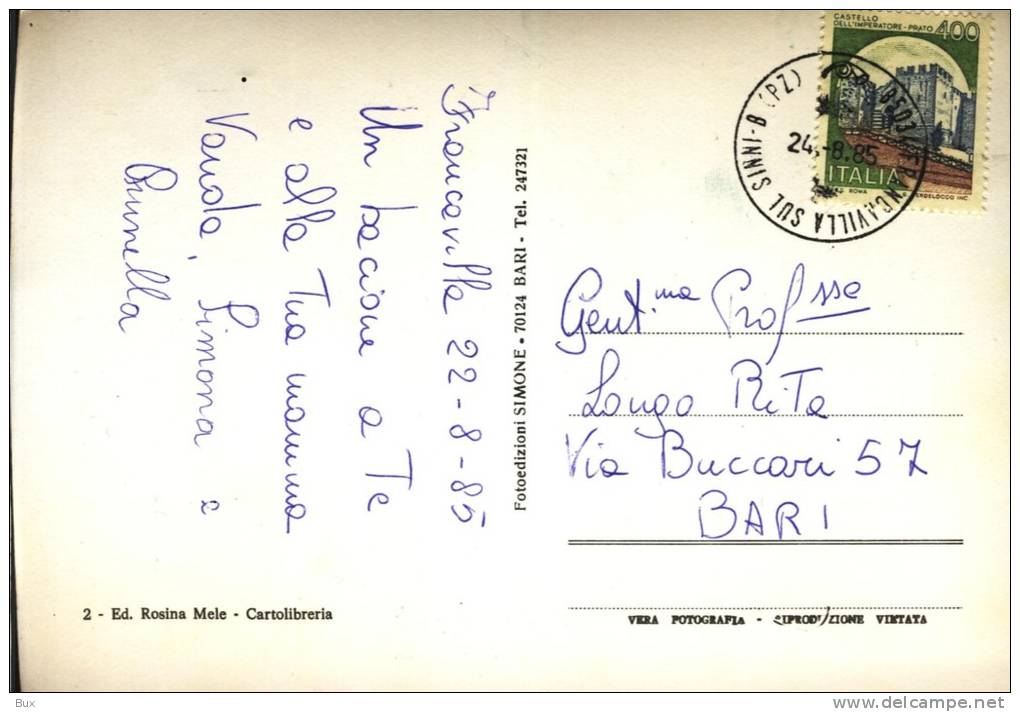 Francavilla 22-8-85
Un bacione a Te
e alla Tua mamma
Vanda, Simona e
Brunella
2 - Ed. Rosina Mele - Cartolibreria
Fotoedizioni SIMONE • 70124 BARI - Tel. 247321
CASTELLO
DELL'IMPERATORE - PRATO
400
ITALIA
ROMA
FRANCAVILLA SUL SINNI-B (PZ)
24.-8.85
Gent.ma Prof.sse
Longo Rita
Via Buccari 57
BARI
VERA FOTOGRAFIA - RIPRODUZIONE VIETATA
Bux
www.delcampe.net